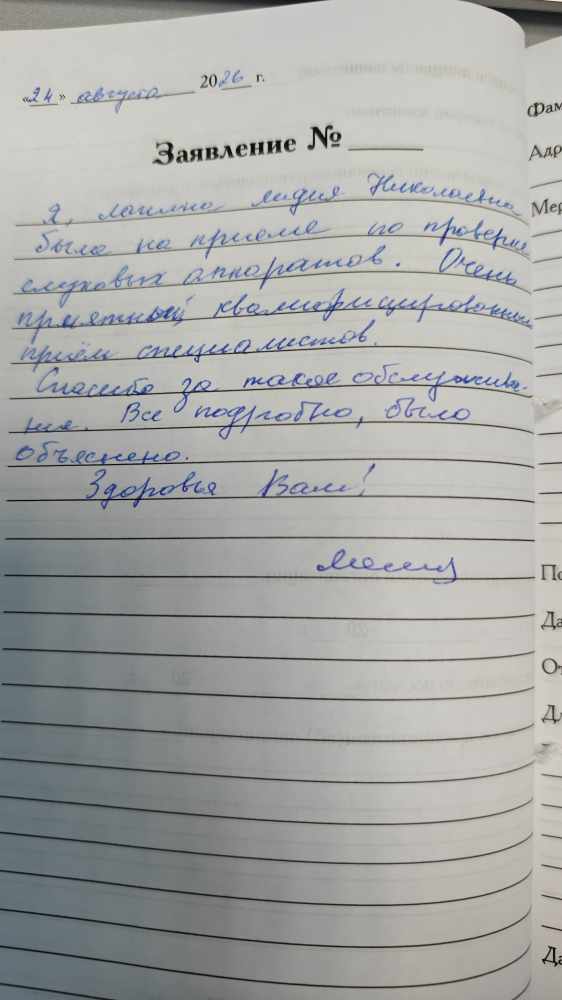 «24» августа 2026 г.
Заявление №
Я, Лидия Николаевна
была на приеме по проверке
слуховых аппаратов. Очень
приятный квалифицированный
приём специалистов.
Спасибо за такое обслужива-
ния. Все подробно, было
объяснено.
Здоровья Вам!
Фам
Адр
Мер
По
Да
От
Дл
Да